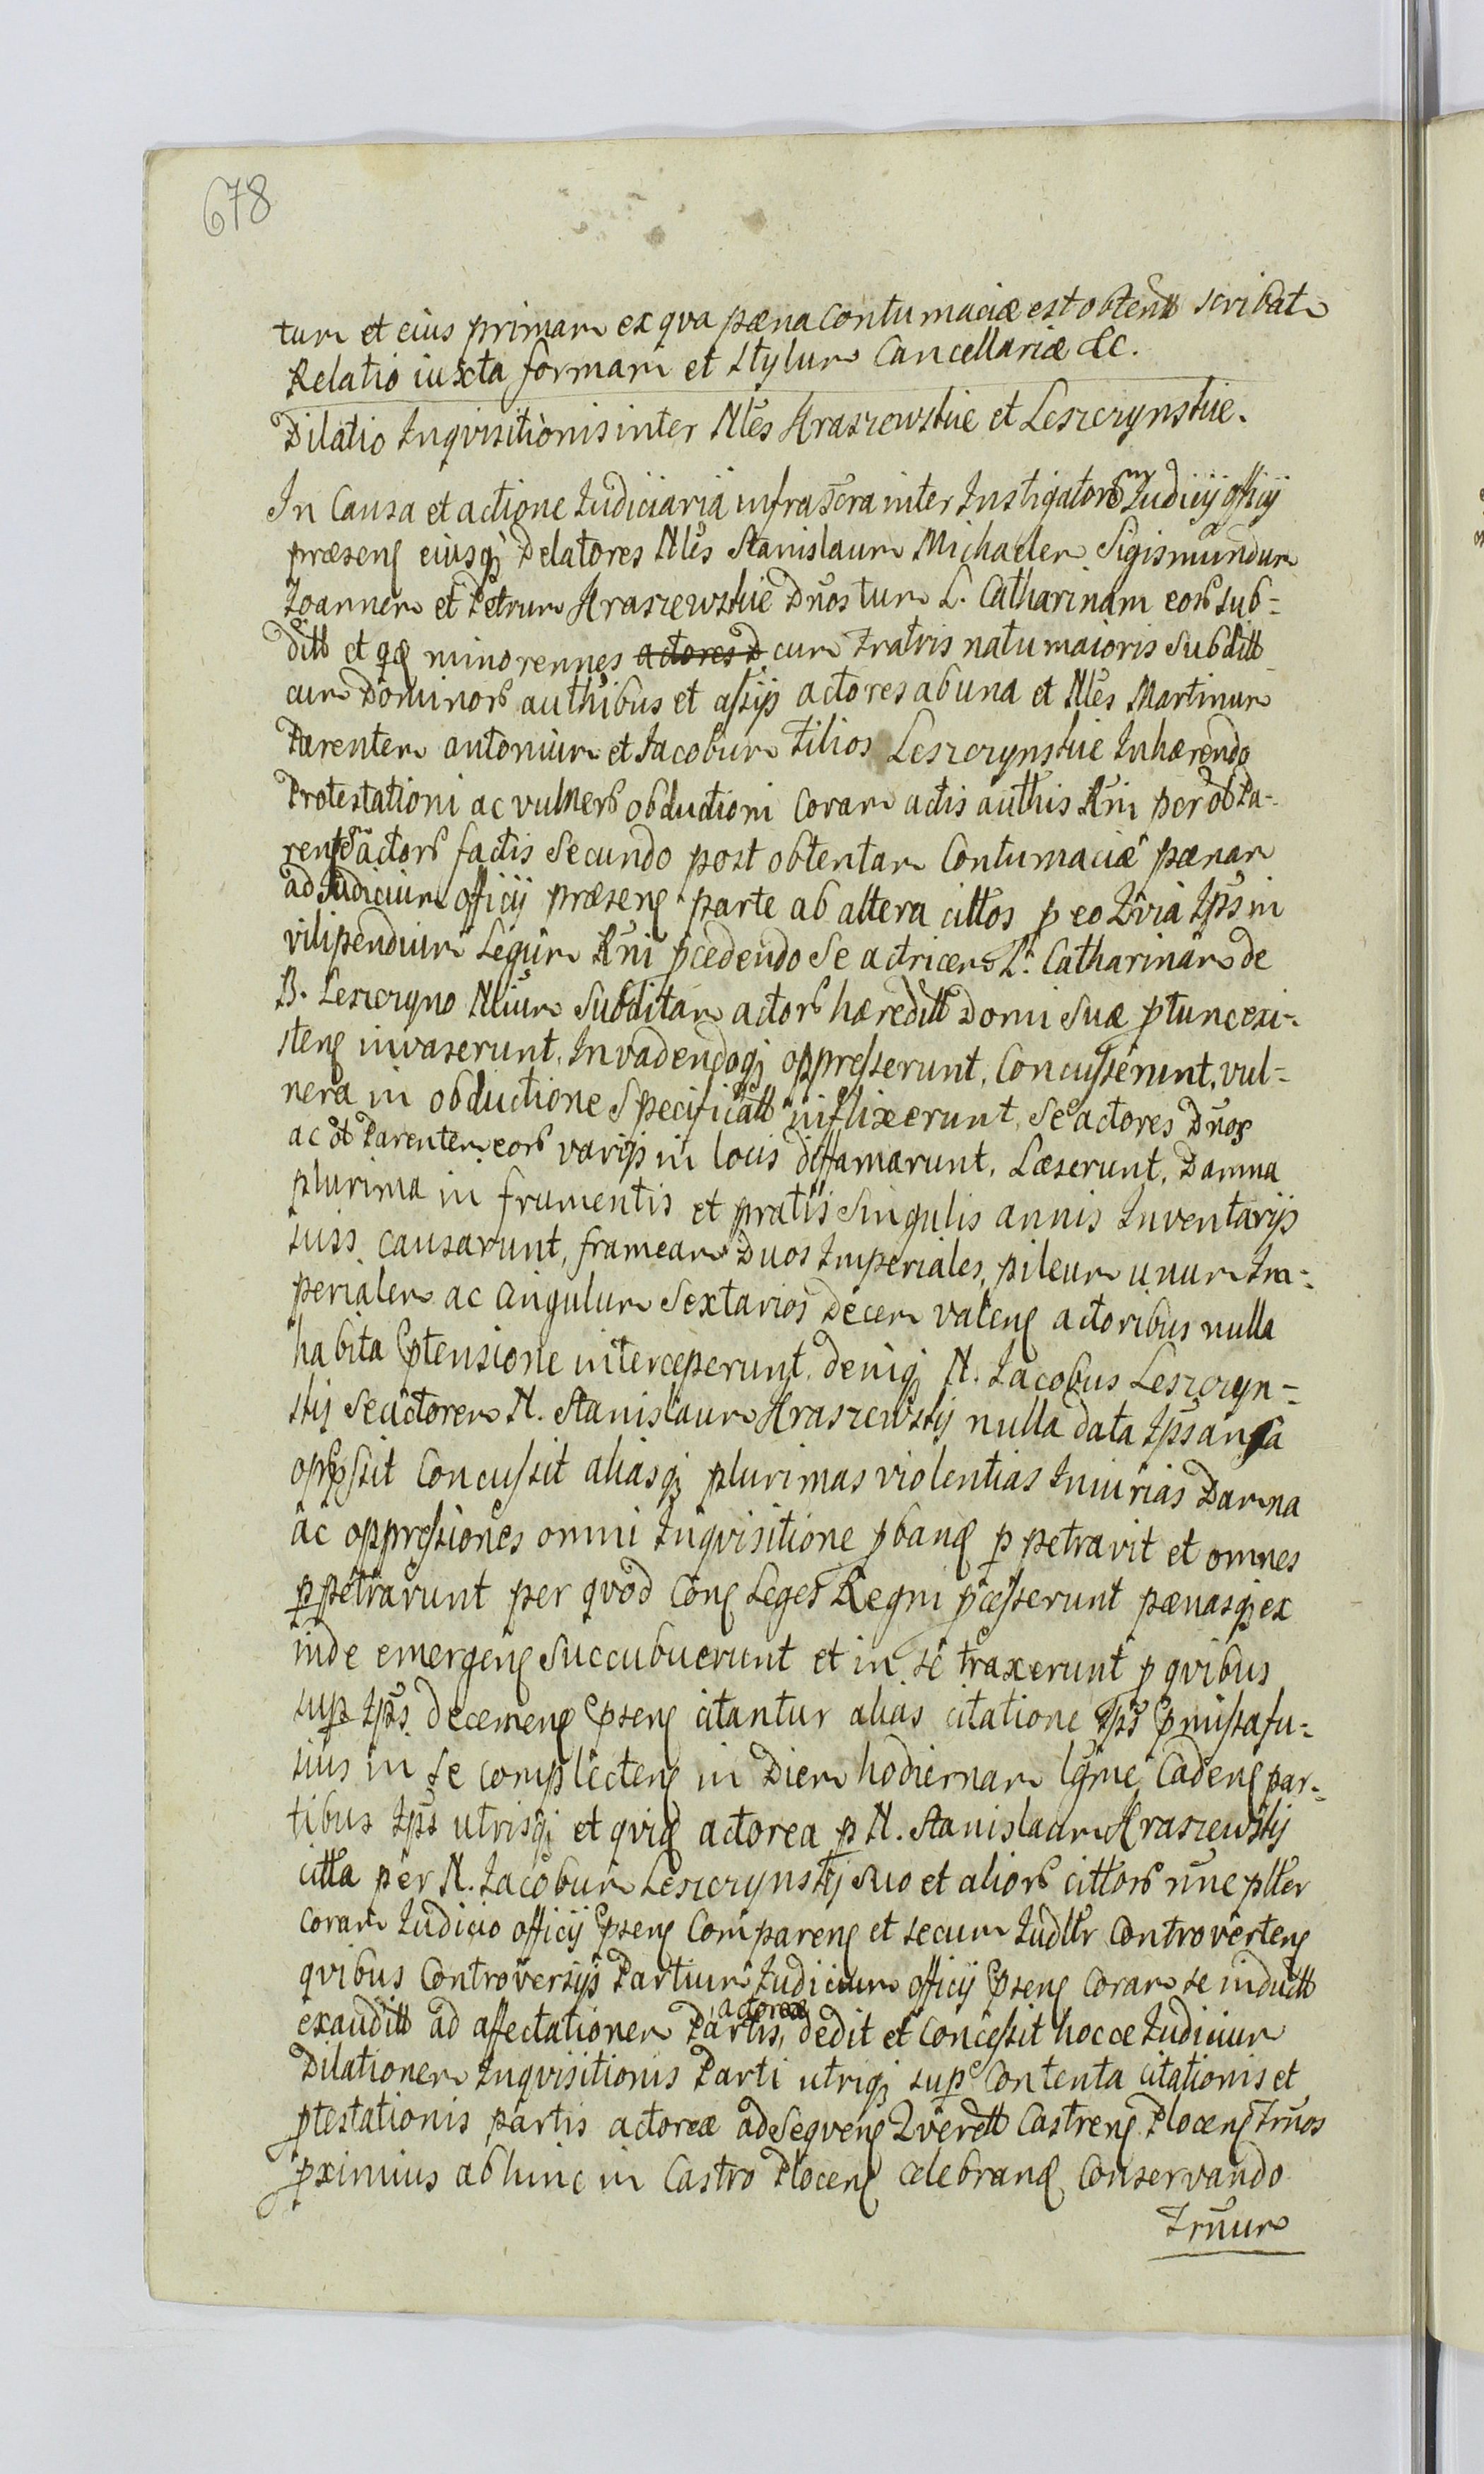 678
tum et eius primam ex qva pæna Contumaciæ est obtent scribat
Relatio iuxta formam et stylum Cancellariæ &c.
Dilatio Inqvisitionis inter Nles Kraszewskie et Leszczynskie.
In Causa et actione Iudiciaria infrascra inter Instigatorem Iudicij officij
præsen eiusq Delatores Nles Stanislaum Michaelem Sigismundum
Ioannem et Petrum Kraszewskie Dnos tum L. Catharinam eor sub=
ditt et qd minorennes cum Fratris natu maioris Subditt
cum Dominor authibus et assijs actores ab una et Nles Martinum
Parentem antonium et Iacobum Filios Leszczynskie Inhærendo
Protestationi ac vulner obductioni Coram actis authis Rni per ob Pa-
rent actor factis Secundo post obtentam Contumaciæ pænam
ad Iudicium officij præsen parte ab altera cittos p eo Qvia Ips in
vilipendium Legum Rni pcedendo Se actricem L. Catharinam de
B. Leszczyno Nlium Subditam actor hæreditt Domi Suæ ptunc exi-
sten invaserunt. Invadendoq oppresserunt, Concusserunt, vul=
nera in obductione Specificatt inflixerunt, Se actores Dnos
ac ob Parentem eor varijs in locis diffamarunt. Læserunt. Damna
plurima in frumentis et pratis Singulis annis Inventarijs
suis causarunt, frameam Duos Imperiales, pileum unum Im=
perialem ac Cingulum Sextarios Decem valen actoribus nulla
habita ptensione interceperunt. deniq N. Iacobus Leszczyn=
skij Se actorem N. Stanislaum Kraszewskij nulla data Ips ansa
oppssit Concussit aliasq plurimas violentias Iniurias Damna
ac oppressiones omni Inqvisitione pband p petravit et omnes
p petrarunt per qvod Con Leges Regni pcesserunt pænasq ex
inde emergen Succubuerunt et in se traxerunt p qvibus
sup Ips decernen psen citantur alias citatione Ips pmissa fu=
sius in se complecten in Diem hodiernam lgme Caden par=
tibus Ips utrisq et qvid actorea p N. Stanislaum Kraszewskij
citta per N. Iacobum Leszczynskij suo et alior cittor nne pltter
coram Iudicio officij psen Comparen et secum Iudltr Controverten
qvibus Controversijs Partium Iudicium officij psen Coram se inductt
exauditt ad affectationem Partis actoreæ, dedit et Concessit hocce Iudicium
Dilationem Inqvisitionis Parti utriq sup Contenta citationis et
ptestationis partis actoreæ ad Seqven Qverell Castren Plocen Trnos
pximius ab hinc in Castro Plocen celebrand Conservando
Trnum